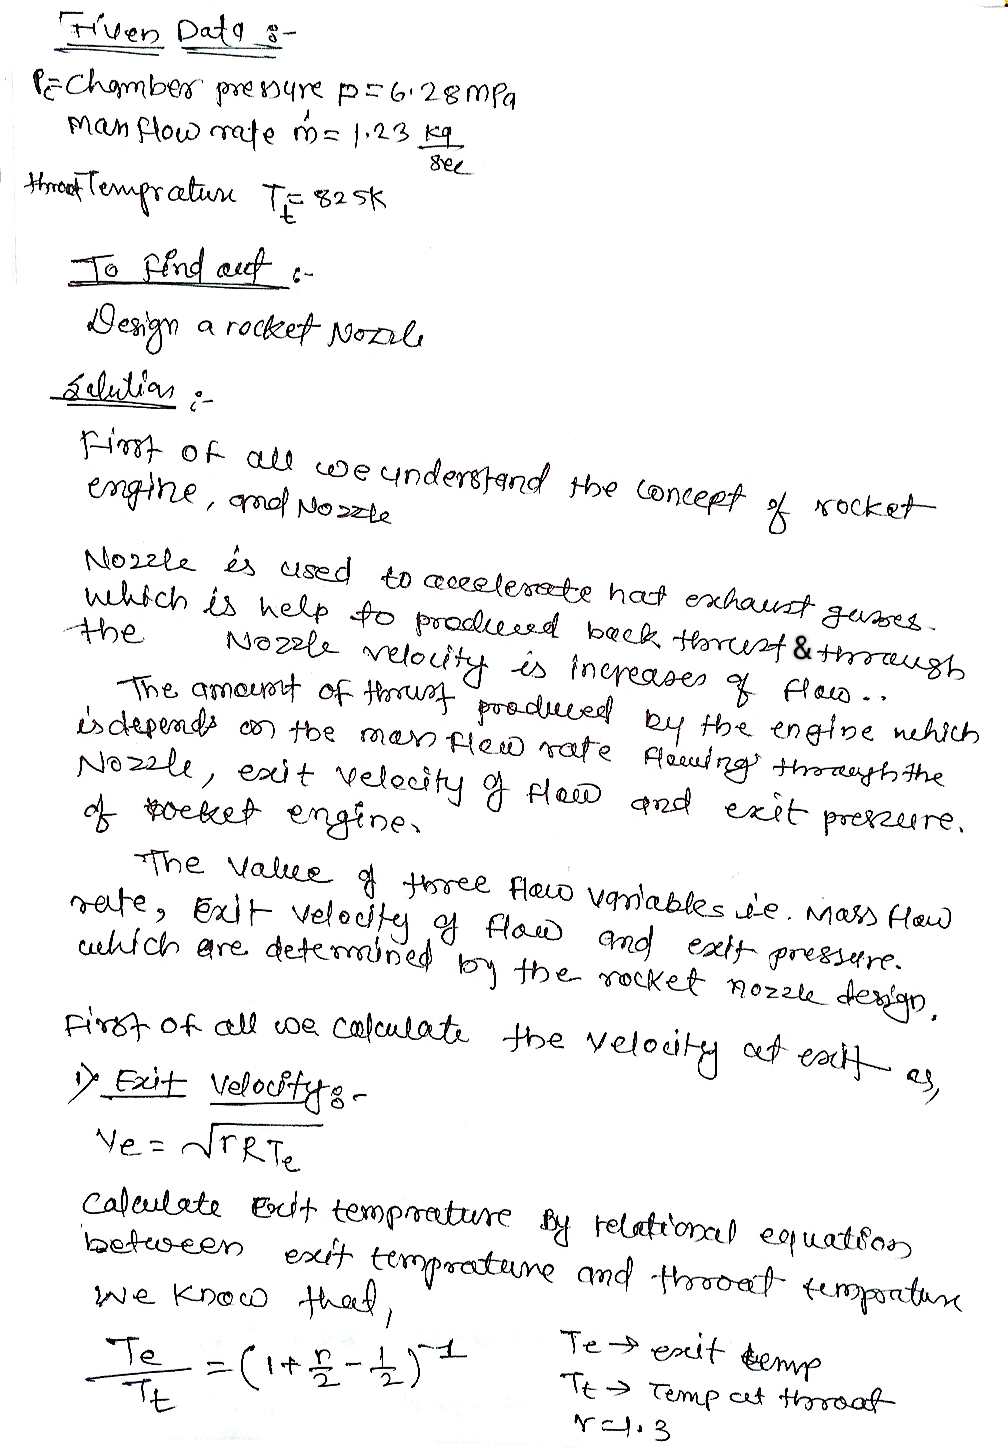 Given Data :-
Pc = Chamber pressure p = 6.28 MPa
Mass flow rate ṁ = 1.23 kg/sec
throat Temprature T_t = 825K
To find out :-
Design a rocket Nozzle
Solution :-
First of all we understand the concept of rocket
engine, and Nozzle
Nozzle is used to accelerate hot exhaust gasses.
which is help to produced back thrust & through
the Nozzle velocity is increases of flow..
The amount of thrust produced by the engine which
is depends on the mass flow rate flowing through the
Nozzle, exit velocity of flow and exit pressure.
of rocket engine.
The Value of three flow variables i.e. Mass flow
rate, Exit velocity of flow and exit pressure.
which are determined by the rocket nozzle design.
First of all we calculate the velocity at exit as,
1) Exit Velocity :-
Ve = √rRTe
Calculate Exit temprature By relational equation
between exit temprature and throat temprature
We Know that,
Te/Tt = (1 + r/2 - 1/2)^-1
Te → exit temp
Tt → Temp at throat
r = 1.3